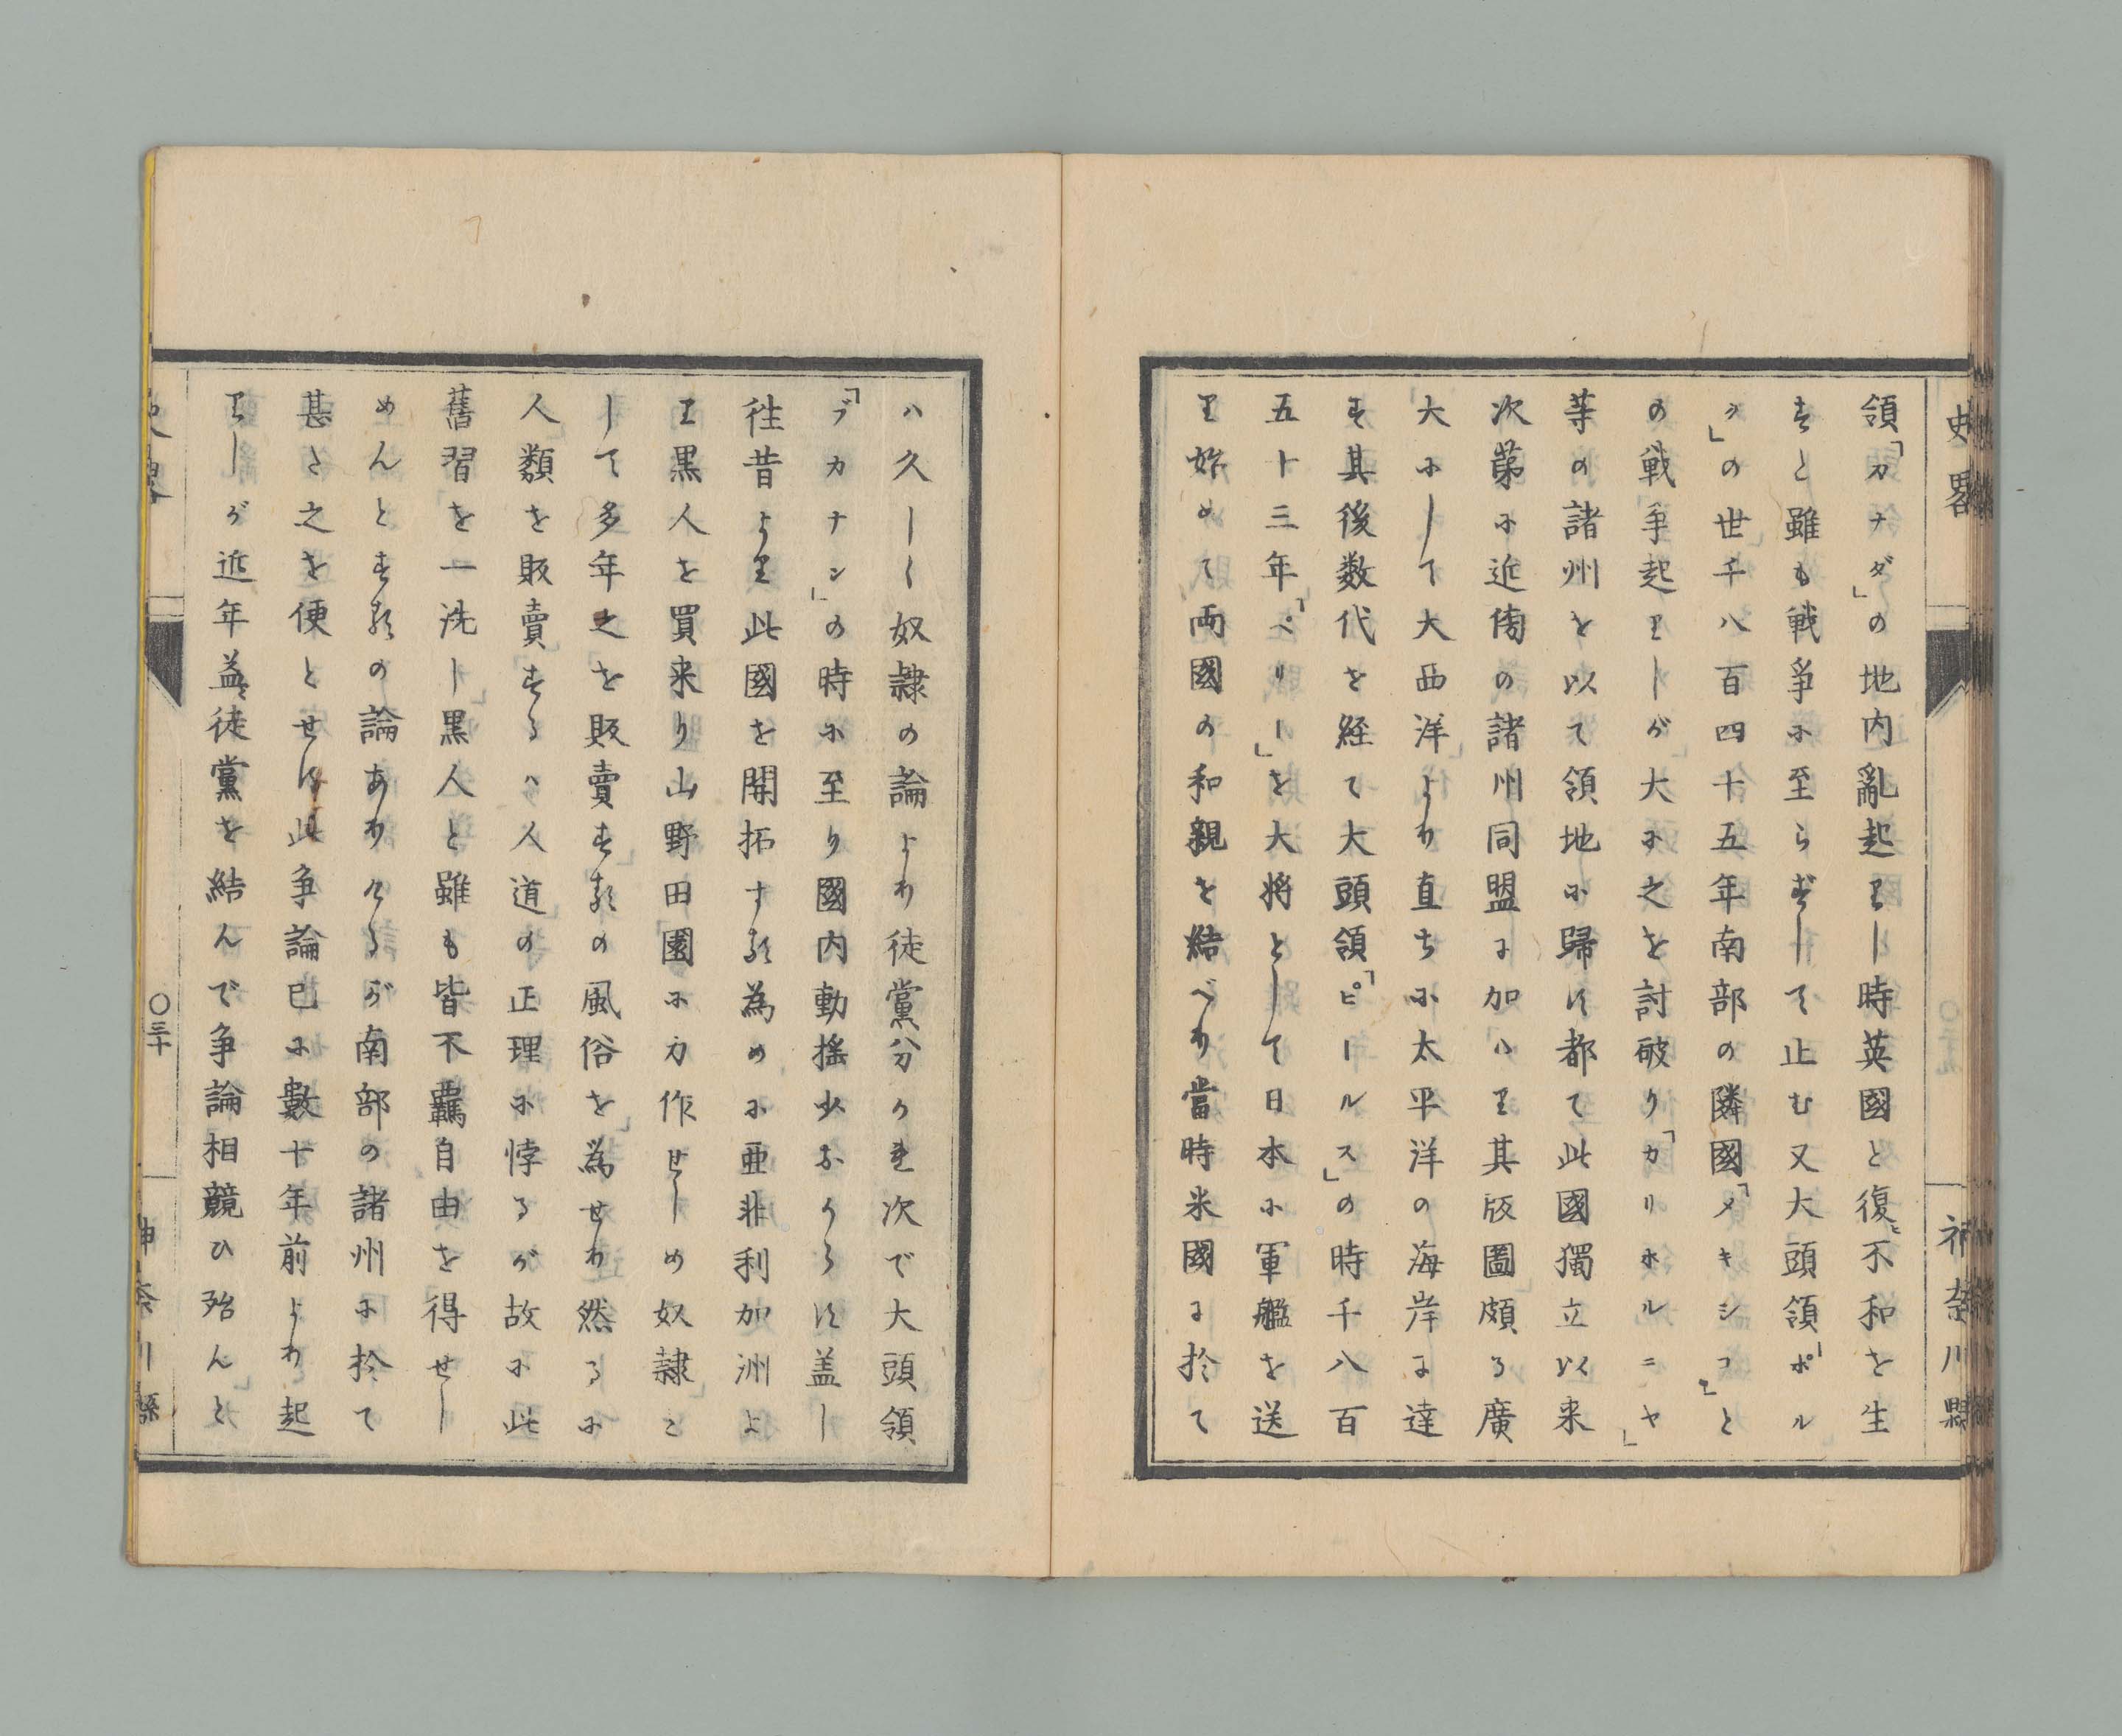 史畧
神奈川縣
領「カナダ」の地内亂起りし時英國と復た不和を生
すと雖も戦爭に至らずして止む又大頭領「ポル
ク」の世千八百四十五年南部の隣國「メキシコ」と
の戦争起りしが大に之を討破り「カリホルニヤ」
等の諸州を以て領地に歸す都て此國獨立以来
次第に近傍の諸州同盟に加はり其版圖頗る廣
大にして大西洋より直ちに太平洋の海岸に達
す其後数代を経て大頭領「ピールス」の時千八百
五十三年「ペリー」を大将として日本に軍艦を送
り始めて両國の和親を結べり當時米國に於て
ハ久しく奴隷の論より徒黨分かれ次で大頭領
「ブカナン」の時に至り國内動揺少なからす盖し
徃昔より此國を開拓する為めに亜非利加洲よ
り黒人を買来り山野田園に力作せしめ奴隷と
して多年之を販賣するの風俗を為せり然るに
人類を販賣するハ人道の正理に悖るが故に此
舊習を一洗し黒人と雖も皆不羈自由を得せし
めんとするの論ありけるが南部の諸州に於て
甚た之を便とせす此争論已に數十年前より起
りしが近年益々徒黨を結んで争論相競ひ殆んと
〇三十
神奈川縣